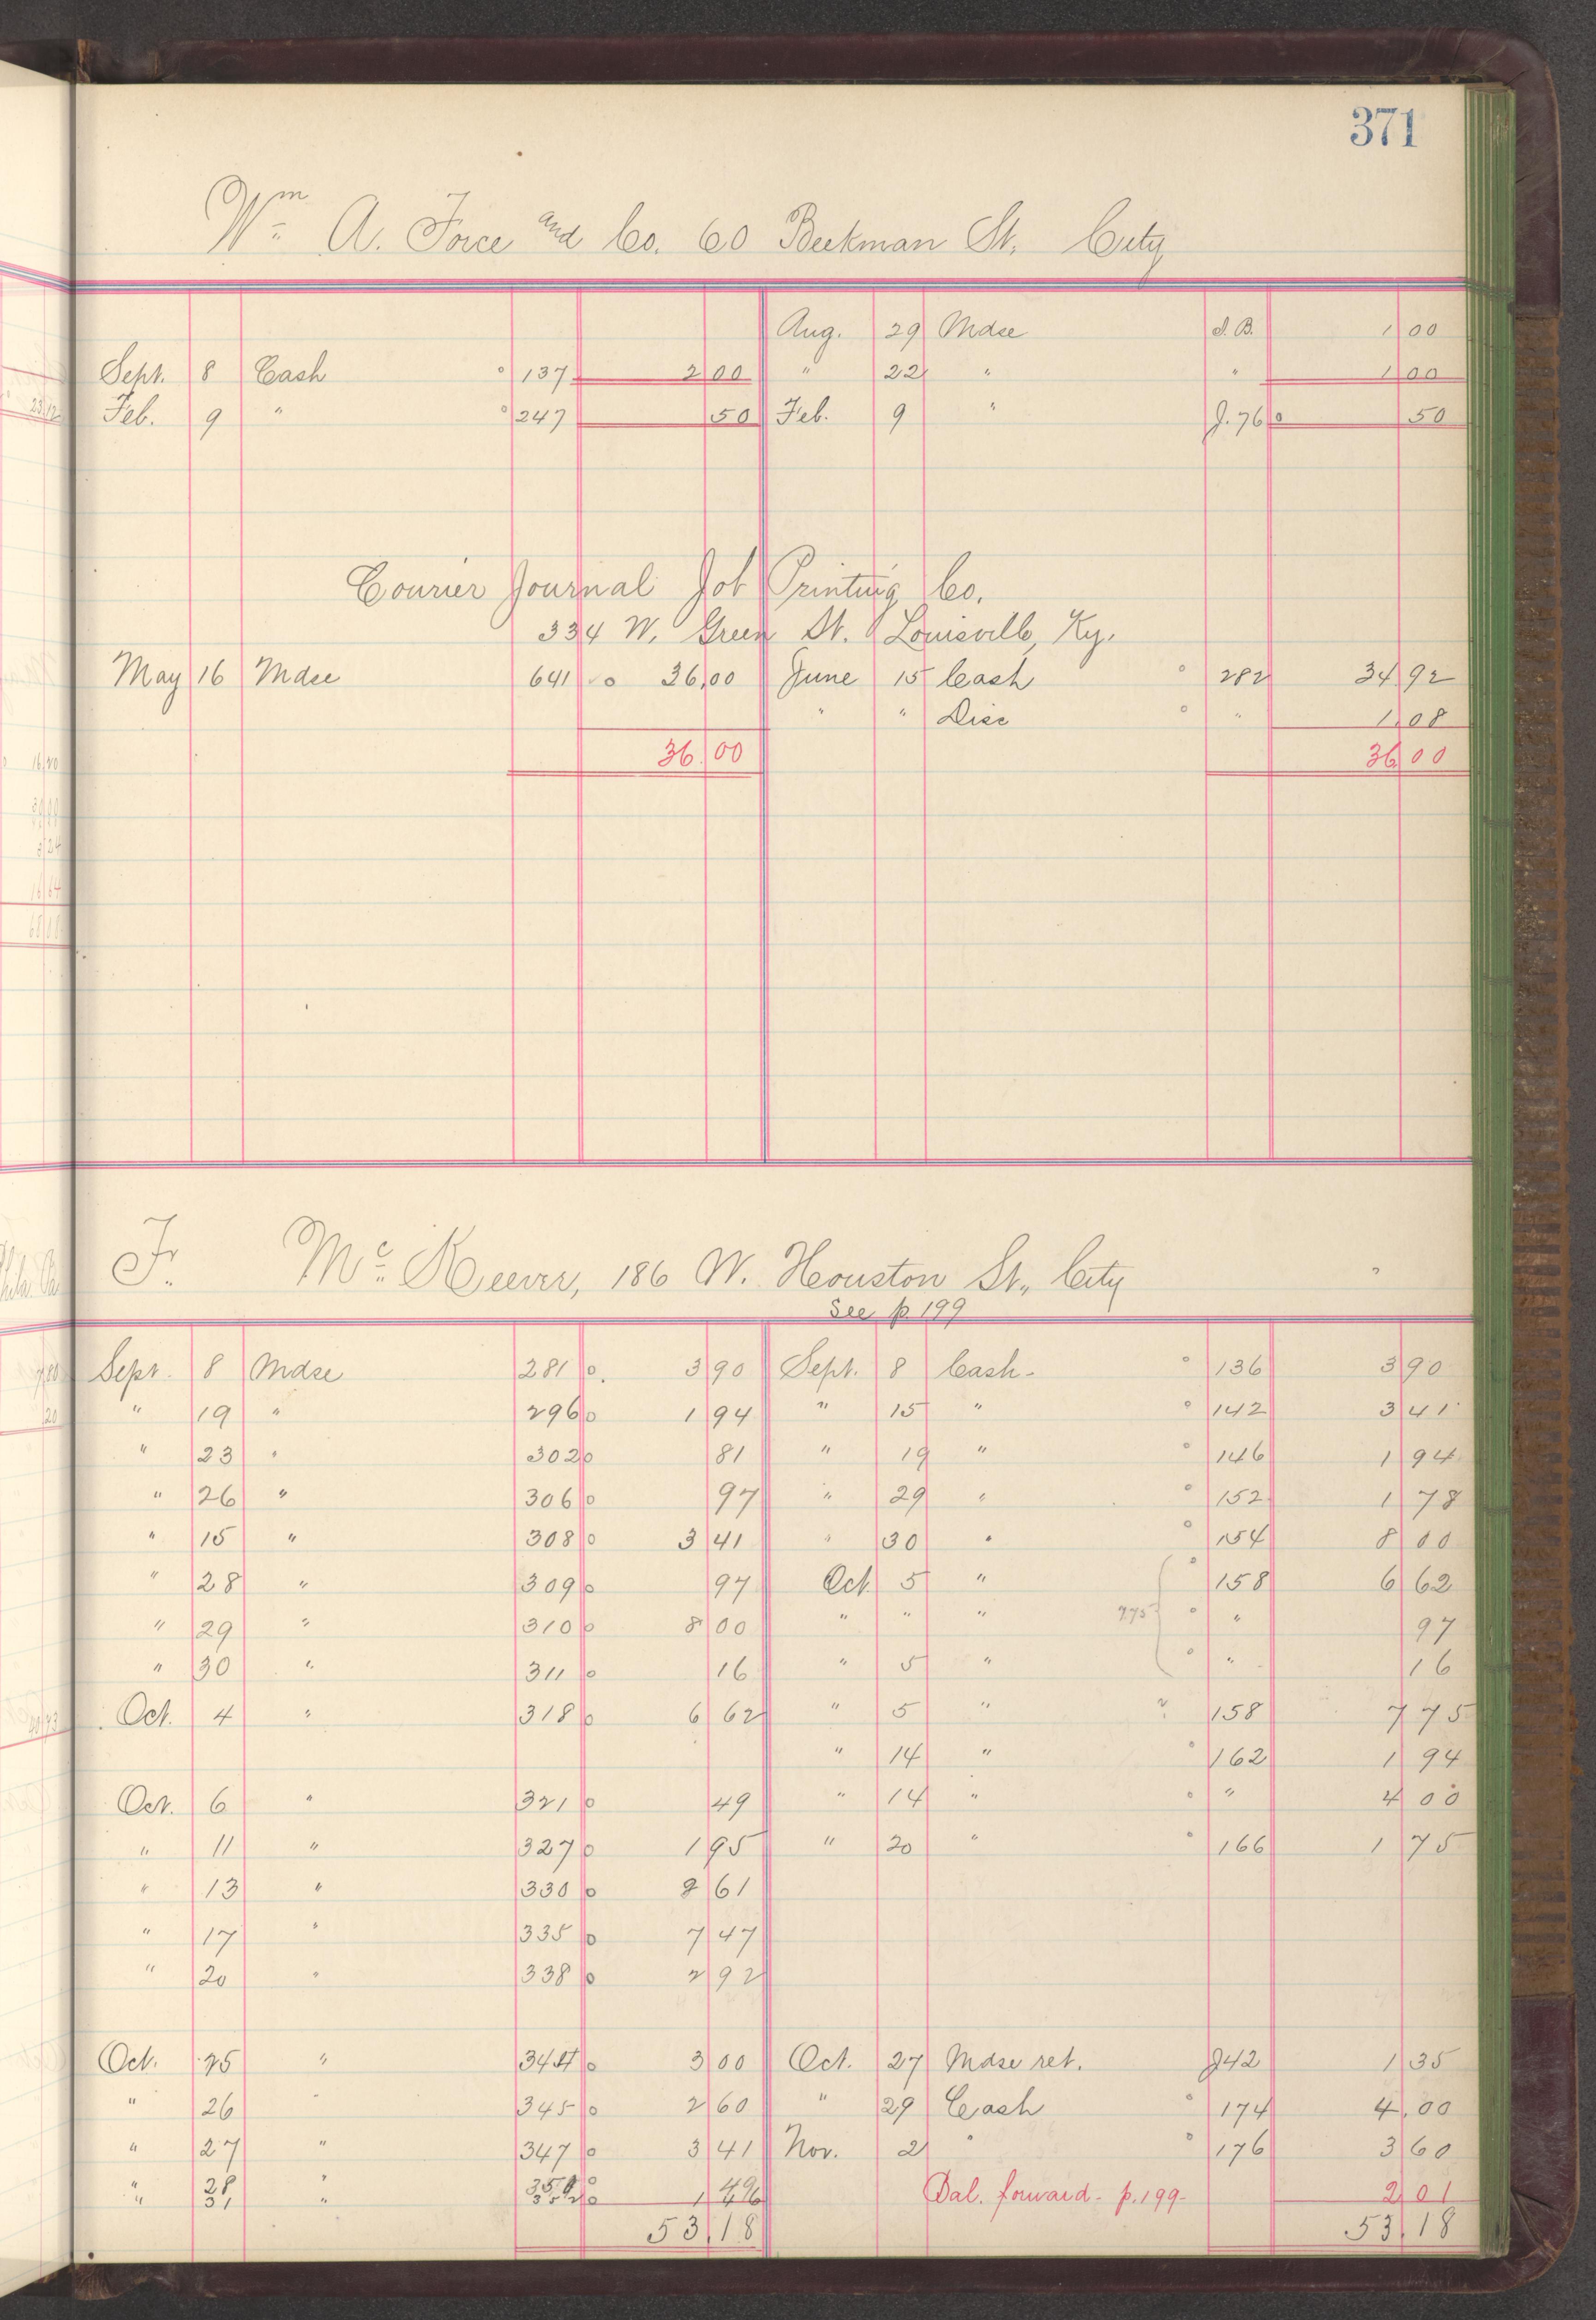 371
Wm A. Force and Co. 60 Beekman St. City
Aug. 29 Mdse S.B. 1 00
Sept. 8 Cash 137 2 00 " 22 " " 1 00
Feb. 9 " 247 50 Feb. 9 " J. 76 50
Courier Journal Job Printing Co.
334 W. Green St. Louisville, Ky.
May 16 Mdse 641 36.00 June 15 Cash 282 34 92
" " Disc " 1.08
36.00 36 00
F. Mc Keever, 186 W. Houston St., City
See p. 199
Sept. 8 Mdse 281 3 90 Sept. 8 Cash 136 3 90
" 19 " 296 1 94 " 15 " 142 3 41
" 23 " 302 81 " 19 " 146 1 94
" 26 " 306 97 " 29 " 152 1 78
" 15 " 308 3 41 " 30 " 154 8 00
" 28 " 309 97 Oct. 5 " 158 6 62
" 29 " 310 8 00 " " " 7.75 " 97
" 30 " 311 16 " 5 " " 16
Oct. 4 " 318 6 62 " 5 " 158 7 75
" 14 " 162 1 94
Oct. 6 " 321 49 " 14 " " 4 00
" 11 " 327 1 95 " 20 " 166 1 75
" 13 " 330 2 61
" 17 " 335 7 47
" 20 " 338 2 92
Oct. 25 " 344 3 00 Oct. 27 Mdse ret. J42 1 35
" 26 " 345 2 60 " 29 Cash 174 4.00
" 27 " 347 3 41 Nov. 2 " 176 3 60
" 28 49
" 31 " 352 1 46 Bal. forward - p. 199 - 2 01
53.18 53.18